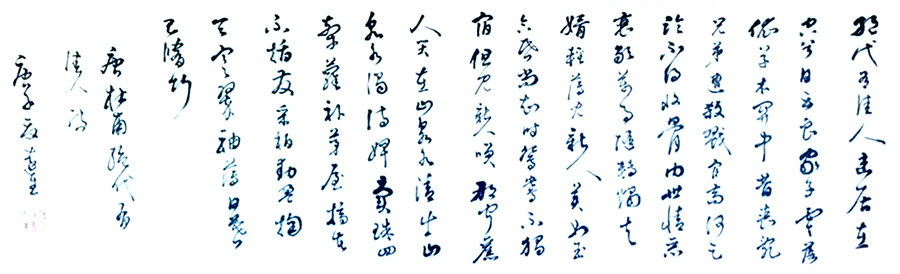 絕代有佳人幽居在
空谷自云良家子零落
依草木關中昔喪亂
兄弟遭殺戮官高何足
論不得收骨肉世情惡
衰歇萬事隨轉燭夫
婿輕薄兒新人美如玉
合昏尚知時鴛鴦不獨
宿但見新人笑那聞舊
人哭在山泉水清出山
泉水濁侍婢賣珠回
牽蘿補茅屋摘花
不插髮采柏動盈掬
天寒翠袖薄日暮
倚脩竹
唐杜甫絕代有
佳人詩